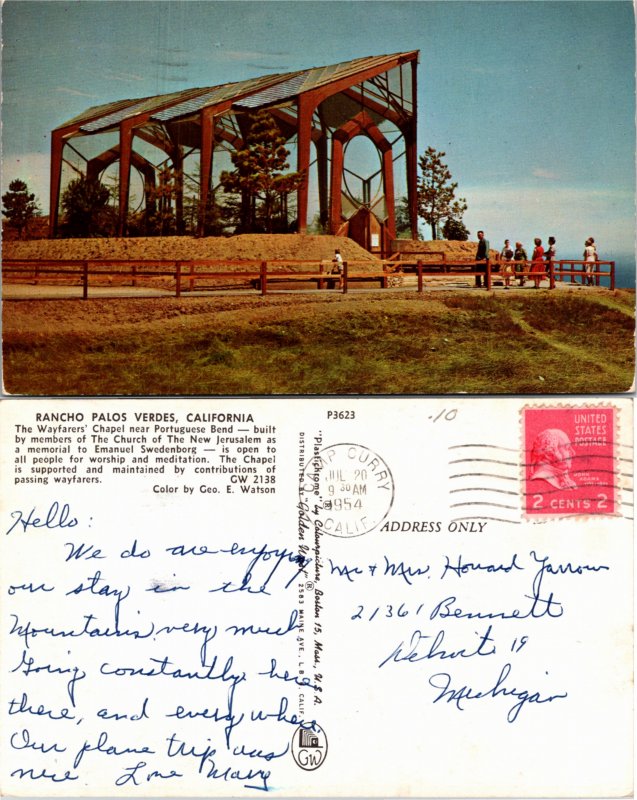 RANCHO PALOS VERDES, CALIFORNIA
The Wayfarers' Chapel near Portuguese Bend — built
by members of The Church of The New Jerusalem as
a memorial to Emanuel Swedenborg — is open to
all people for worship and meditation. The Chapel
is supported and maintained by contributions of
passing wayfarers. GW 2138
Color by Geo. E. Watson
Hello:
We do are enjoying
our stay in the
Mountains very much
Going constantly here
there, and everywhere
Our plane trip was
nice. Love Mary
P3623
"Plastichrome" ® by Colourpicture, Boston 15, Mass. U.S.A.
DISTRIBUTED BY "Golden West" ® 2583 MAINE AVE., L.B., CALIF.
GW
.10
CAMP CURRY
JUL 20
9 30 AM
1954
CALIF.
UNITED
STATES
POSTAGE
JOHN ADAMS
2 CENTS 2
ADDRESS ONLY
Mr & Mrs. Howard Yarrow
21361 Bennett
Detroit 19
Michigan